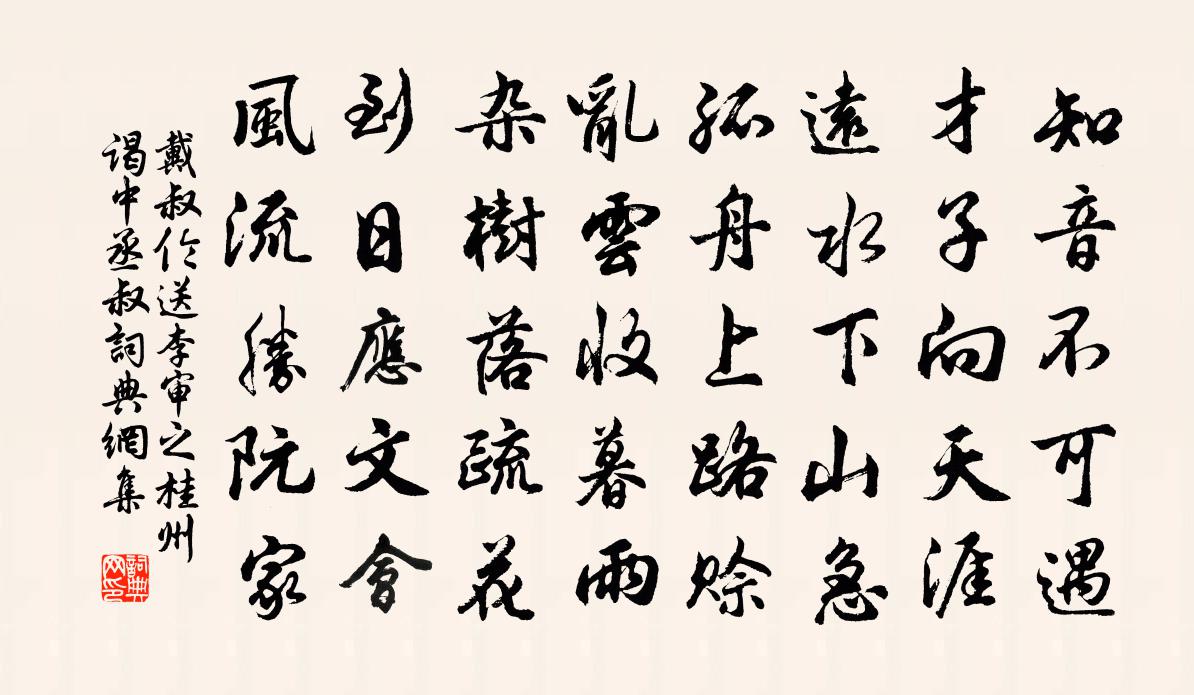 知音不可遇
才子向天涯
遠水下山急
孤舟上路賒
亂雲收暮雨
杂樹落疏花
到日應文會
風流勝阮家
戴叔伦送李审之桂州
谒中丞叔詞典網集
詞典
网印